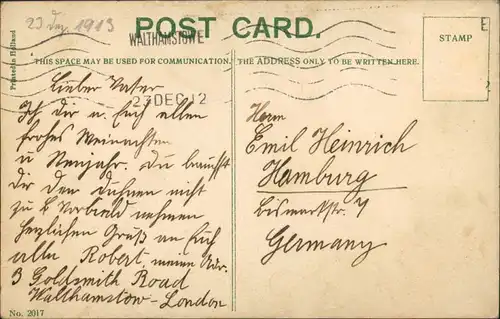 23 Dez. 1913
POST CARD.
WALTHAMSTOWE
Printed in Holland
THIS SPACE MAY BE USED FOR COMMUNICATION.
THE ADDRESS ONLY TO BE WRITTEN HERE.
STAMP
23 DEC 12
Lieber Vater
Ich dir u. Euch allen
frohes Weinachten
u Neujahr. Du brauchst
dir den nicht
zu Vorbield nehmen
herzlichen Gruß an Euch
alln Robert. meine Adr.
3 Goldsmith Road
Walthamstow - London
Herrn
Emil Heinrich
Hamburg
Bismarkstr. 7
Germany
No. 2017